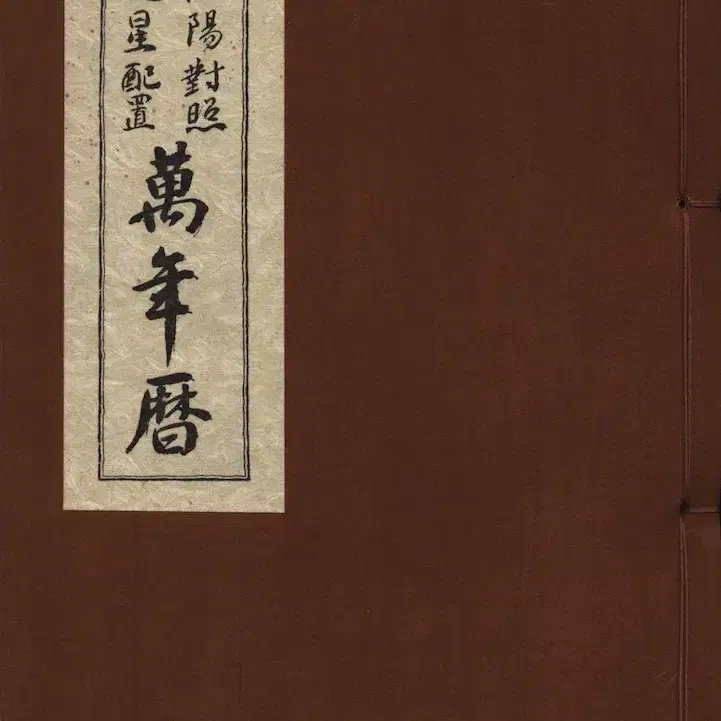 陽對照
星配置
萬年曆